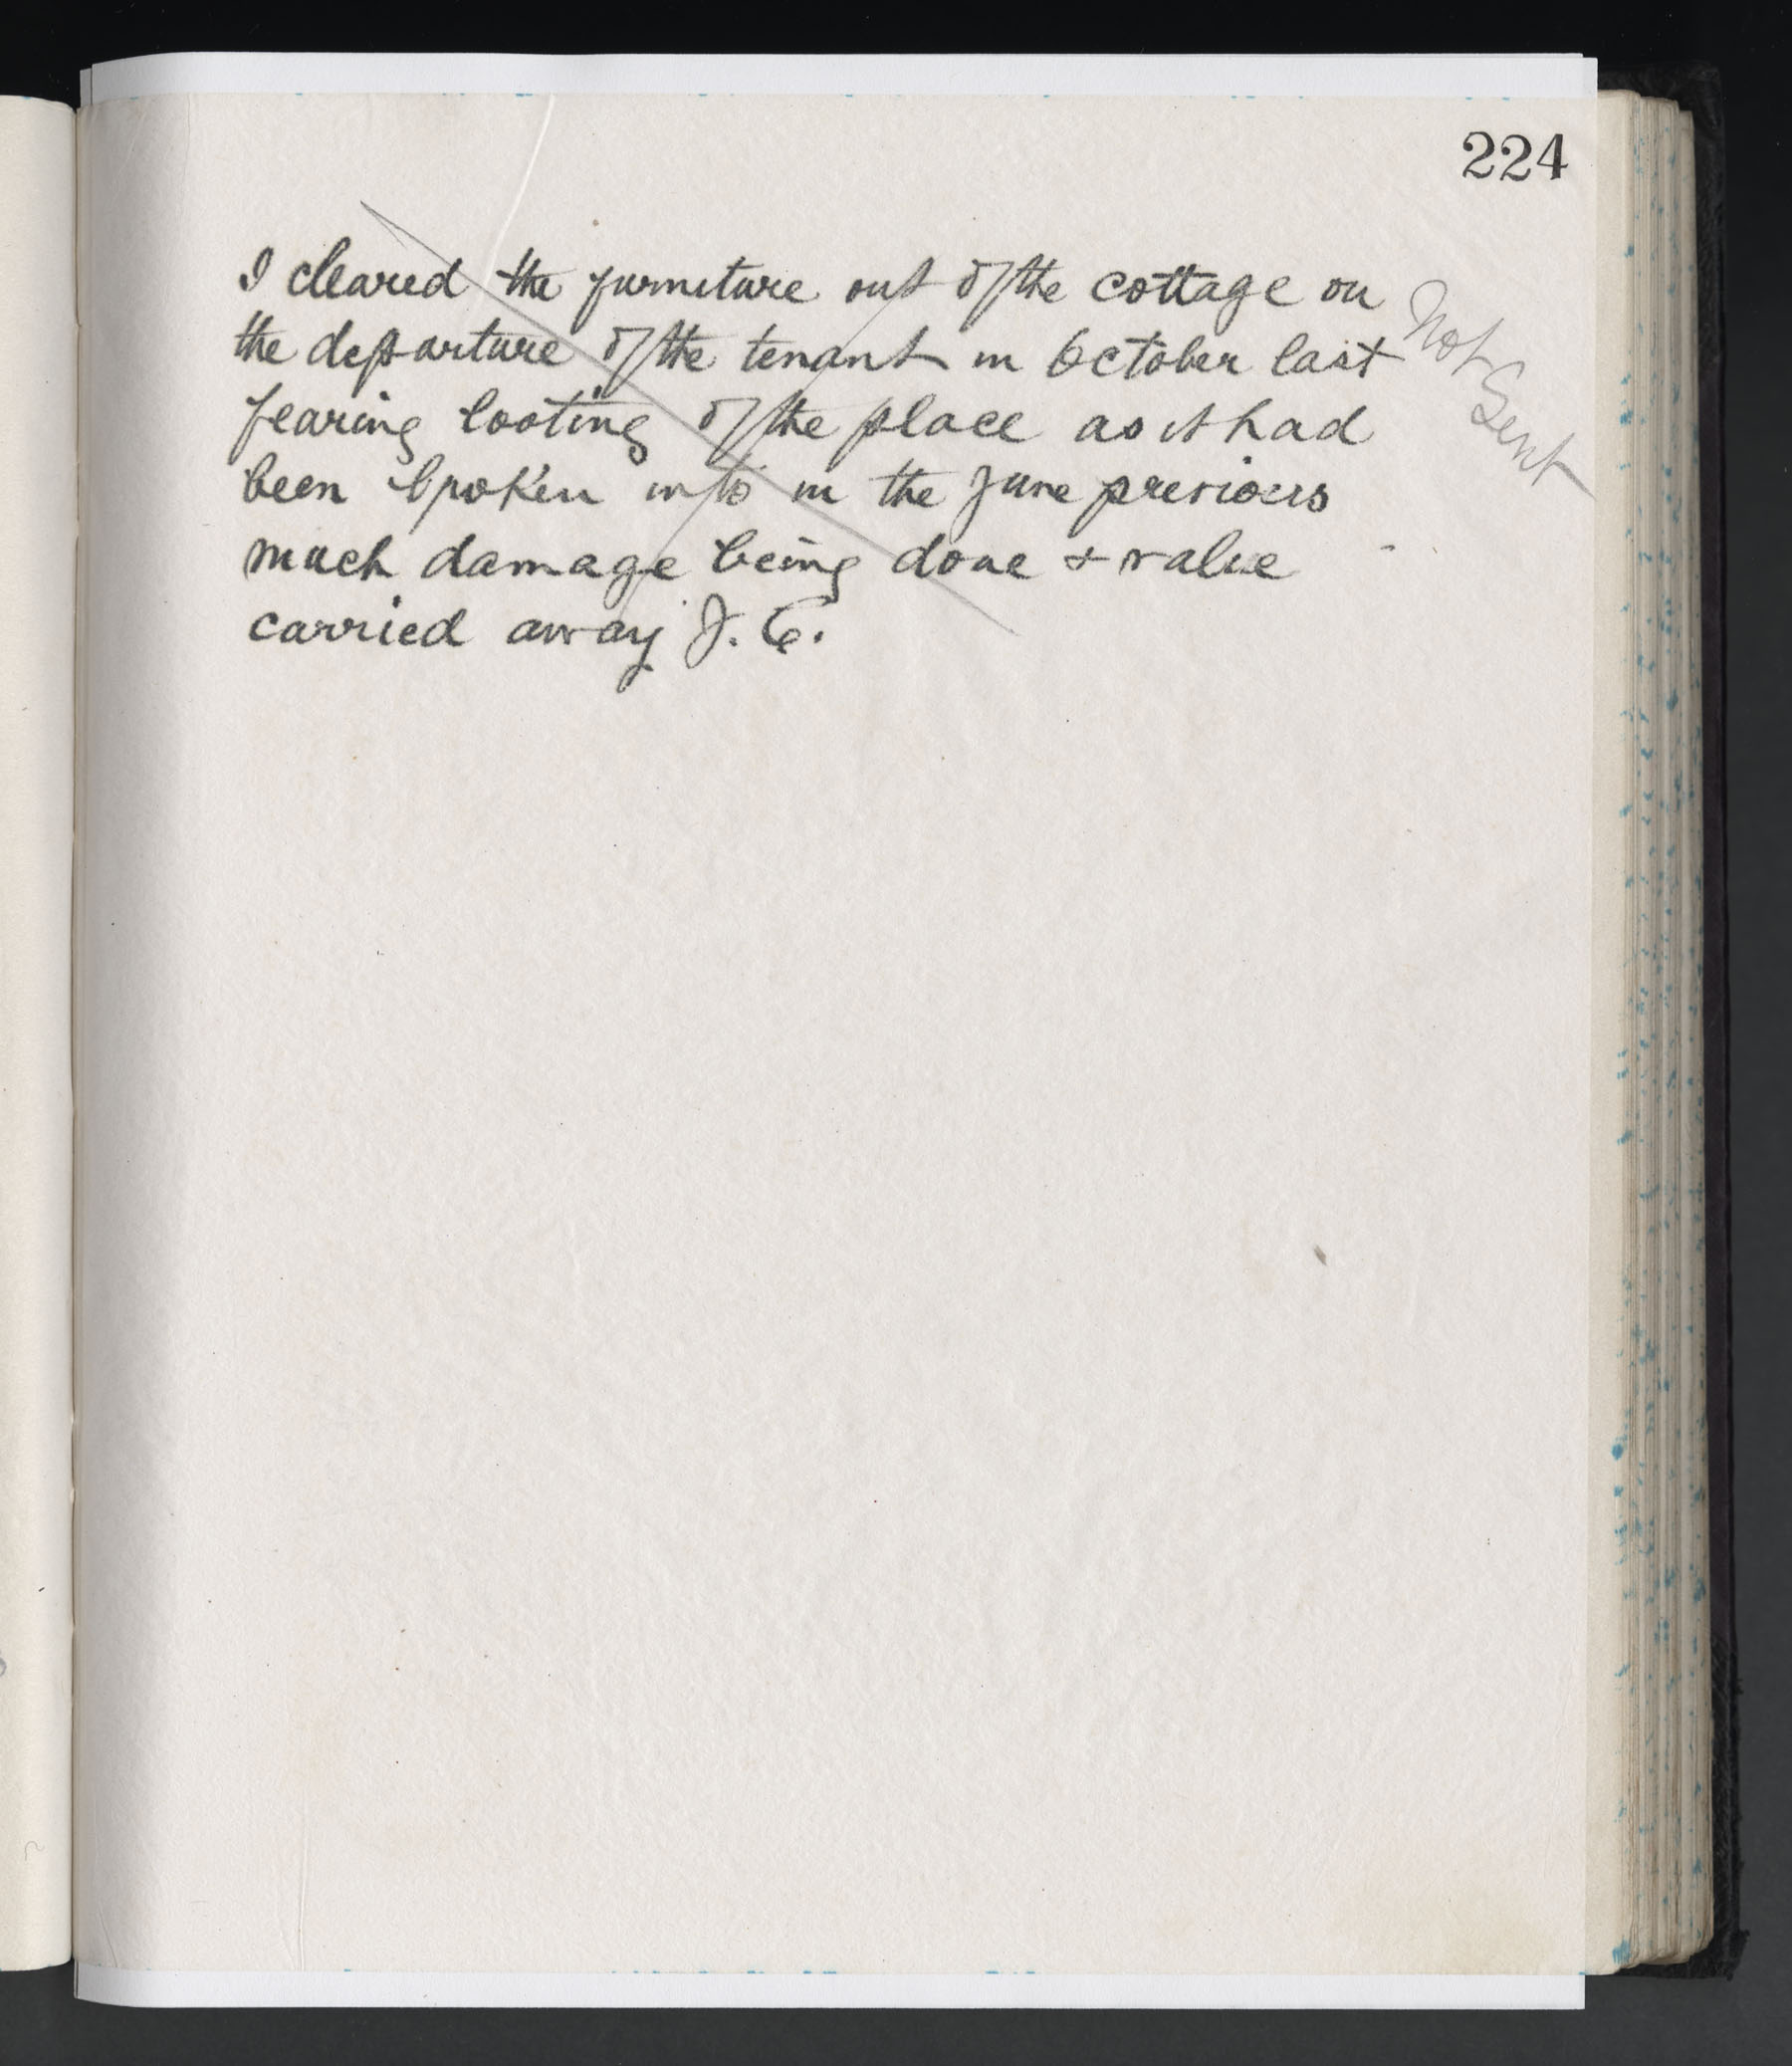 224
I cleared the furniture out of the cottage on
the departure of the tenant in October last
fearing looting of the place as it had
been broken into in the June previous
much damage being done & value
carried away J. C.
Not
Sent